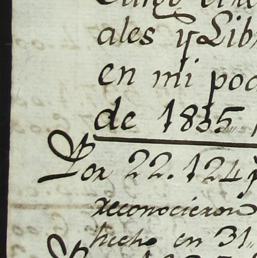 Cargo
ales y Lib
en mi pod
de 1835
Por 22.124
reconocieron
hecho en 31